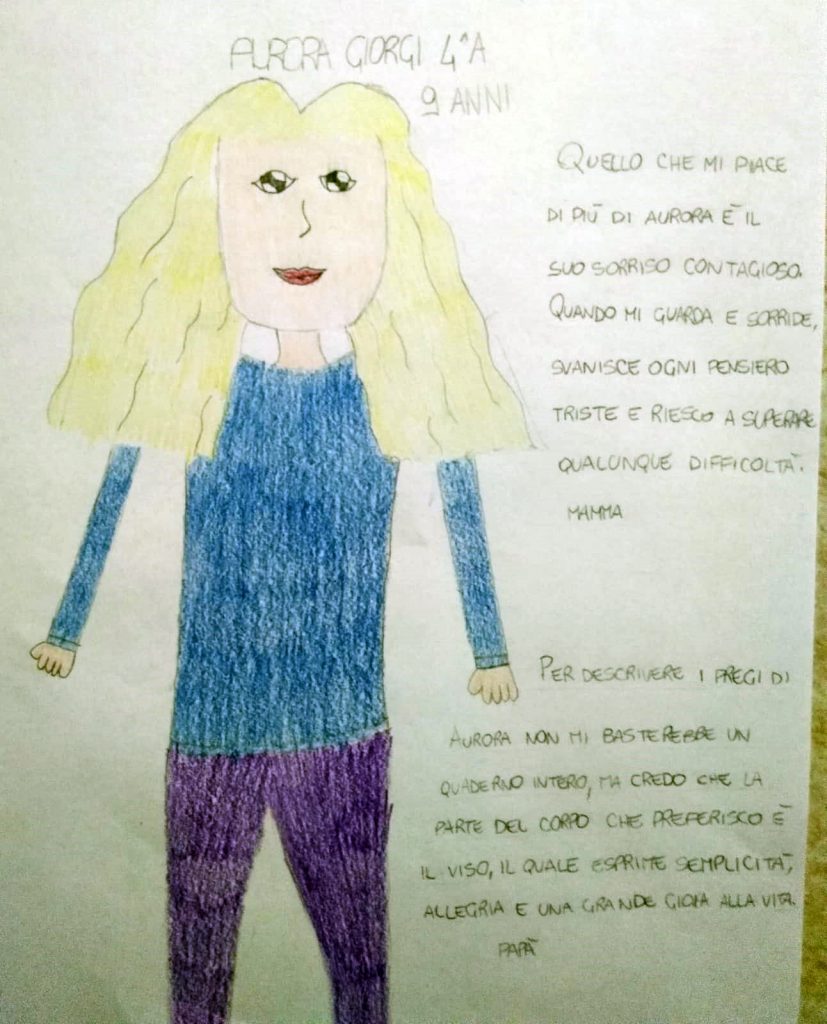 AURORA GIORGI 4^A
9 ANNI
QUELLO CHE MI PIACE
DI PIÙ DI AURORA È IL
SUO SORRISO CONTAGIOSO.
QUANDO MI GUARDA E SORRIDE,
SVANISCE OGNI PENSIERO
TRISTE E RIESCO A SUPERARE
QUALUNQUE DIFFICOLTÀ.
MAMMA
PER DESCRIVERE I PREGI DI
AURORA NON MI BASTEREBBE UN
QUADERNO INTERO, MA CREDO CHE LA
PARTE DEL CORPO CHE PREFERISCO È
IL VISO, IL QUALE ESPRIME SEMPLICITÀ,
ALLEGRIA E UNA GRANDE GIOIA ALLA VITA.
PAPÀ